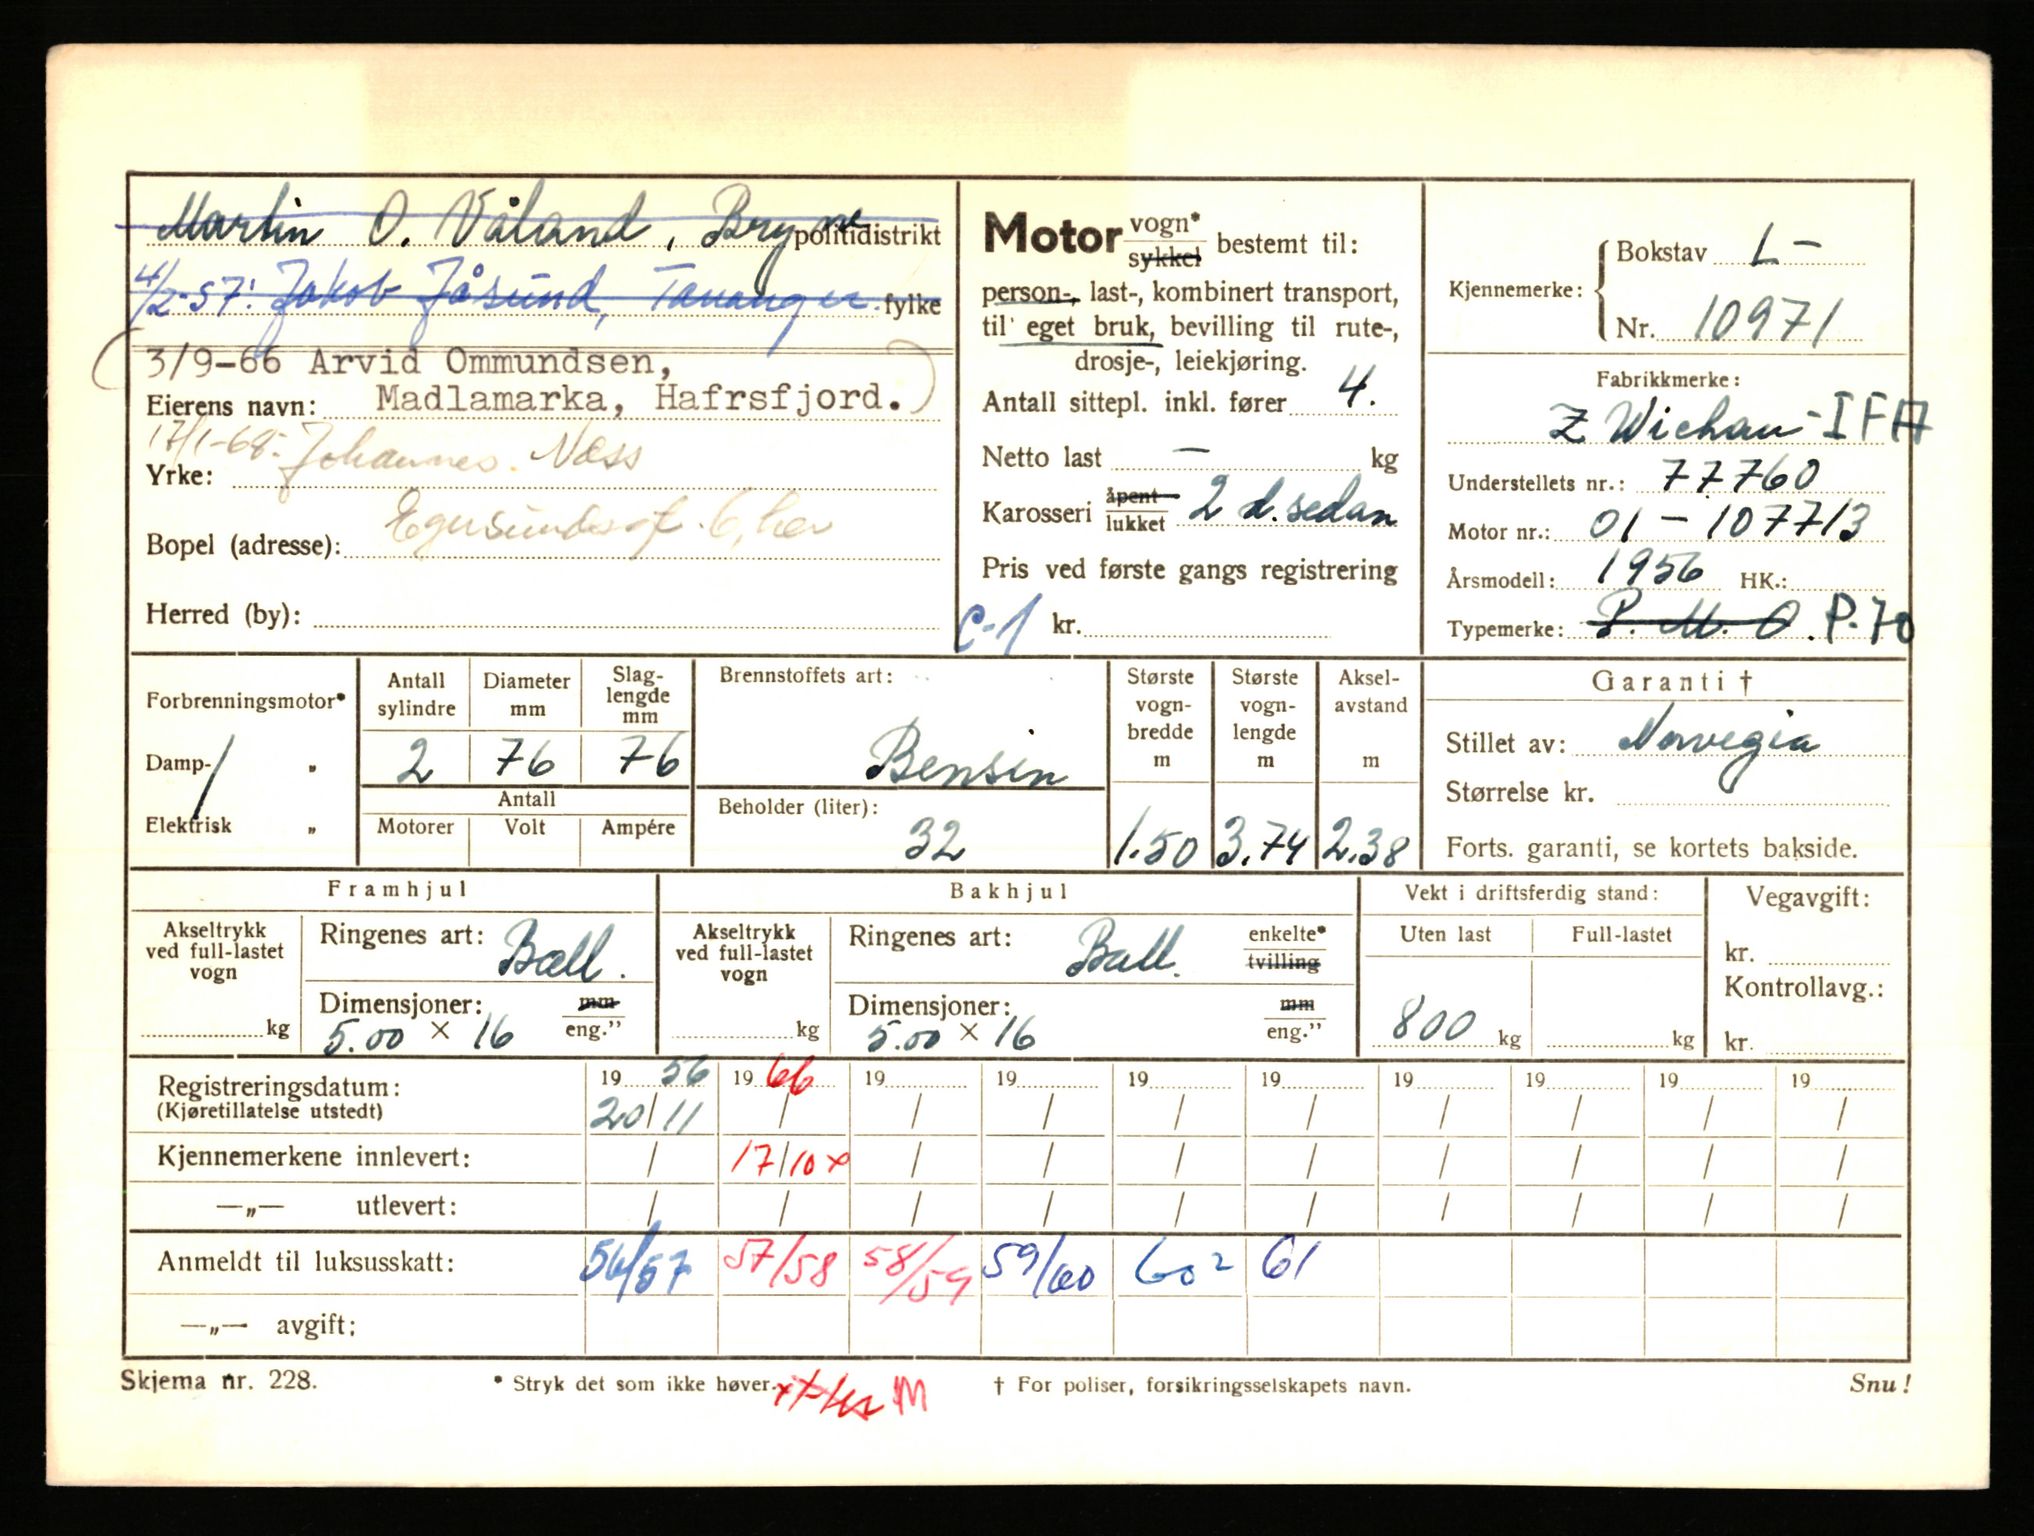 Martin O. Våland, Bryne politidistrikt
4/2-57: Jakob Jåsund, Tananger. fylke
(3/9-66 Arvid Ommundsen,
Eierens navn: Madlamarka, Hafrsfjord.)
17/1-68: Johannes Næss
Yrke:
Egersundsgt. 6, her
Bopel (adresse):
Herred (by):
Motor vogn* / sykkel bestemt til:
person-, last-, kombinert transport,
til eget bruk, bevilling til rute-,
drosje-, leiekjøring.
Antall sittepl. inkl. fører 4.
Netto last — kg
Karosseri åpent / lukket 2 d. sedan
Pris ved første gangs registrering
C-1 kr.
Kjennemerke: Bokstav L-
Nr. 10971
Fabrikkmerke:
Z Wichau - IFA
Understellets nr.: 77760
Motor nr.: 01-107713
Årsmodell: 1956 HK.:
Typemerke: P. M. O. P-70
Forbrenningsmotor*
Damp- "
Elektrisk "
Antall sylindre 2
Diameter mm 76
Slaglengde mm 76
Antall
Motorer Volt Ampére
Brennstoffets art:
Bensin
Beholder (liter):
32
Største vognbredde m 1.50
Største vognlengde m 3.74
Akselavstand m 2.38
Garanti †
Stillet av: Norvegia
Størrelse kr.
Forts. garanti, se kortets bakside.
Framhjul
Akseltrykk ved full-lastet vogn kg
Ringenes art: Ball.
Dimensjoner: mm / eng."
5.00 × 16
Bakhjul
Akseltrykk ved full-lastet vogn kg
Ringenes art: Ball. enkelte* / tvilling
Dimensjoner: mm / eng."
5.00 × 16
Vekt i driftsferdig stand:
Uten last Full-lastet
800 kg kg
Vegavgift:
kr.
Kontrollavg.:
kr.
Registreringsdatum: 19 56 19 66 19 19 19 19 19 19 19 19
(Kjøretillatelse utstedt) 20/11 / / / / / / / / /
Kjennemerkene innlevert: / 17/10 x / / / / / / / /
—„— utlevert: / / / / / / / / / /
Anmeldt til luksusskatt: 56/57 57/58 58/59 59/60 60 2 61
—„— avgift:
Skjema nr. 228. * Stryk det som ikke høver. † For poliser, forsikringsselskapets navn. Snu!